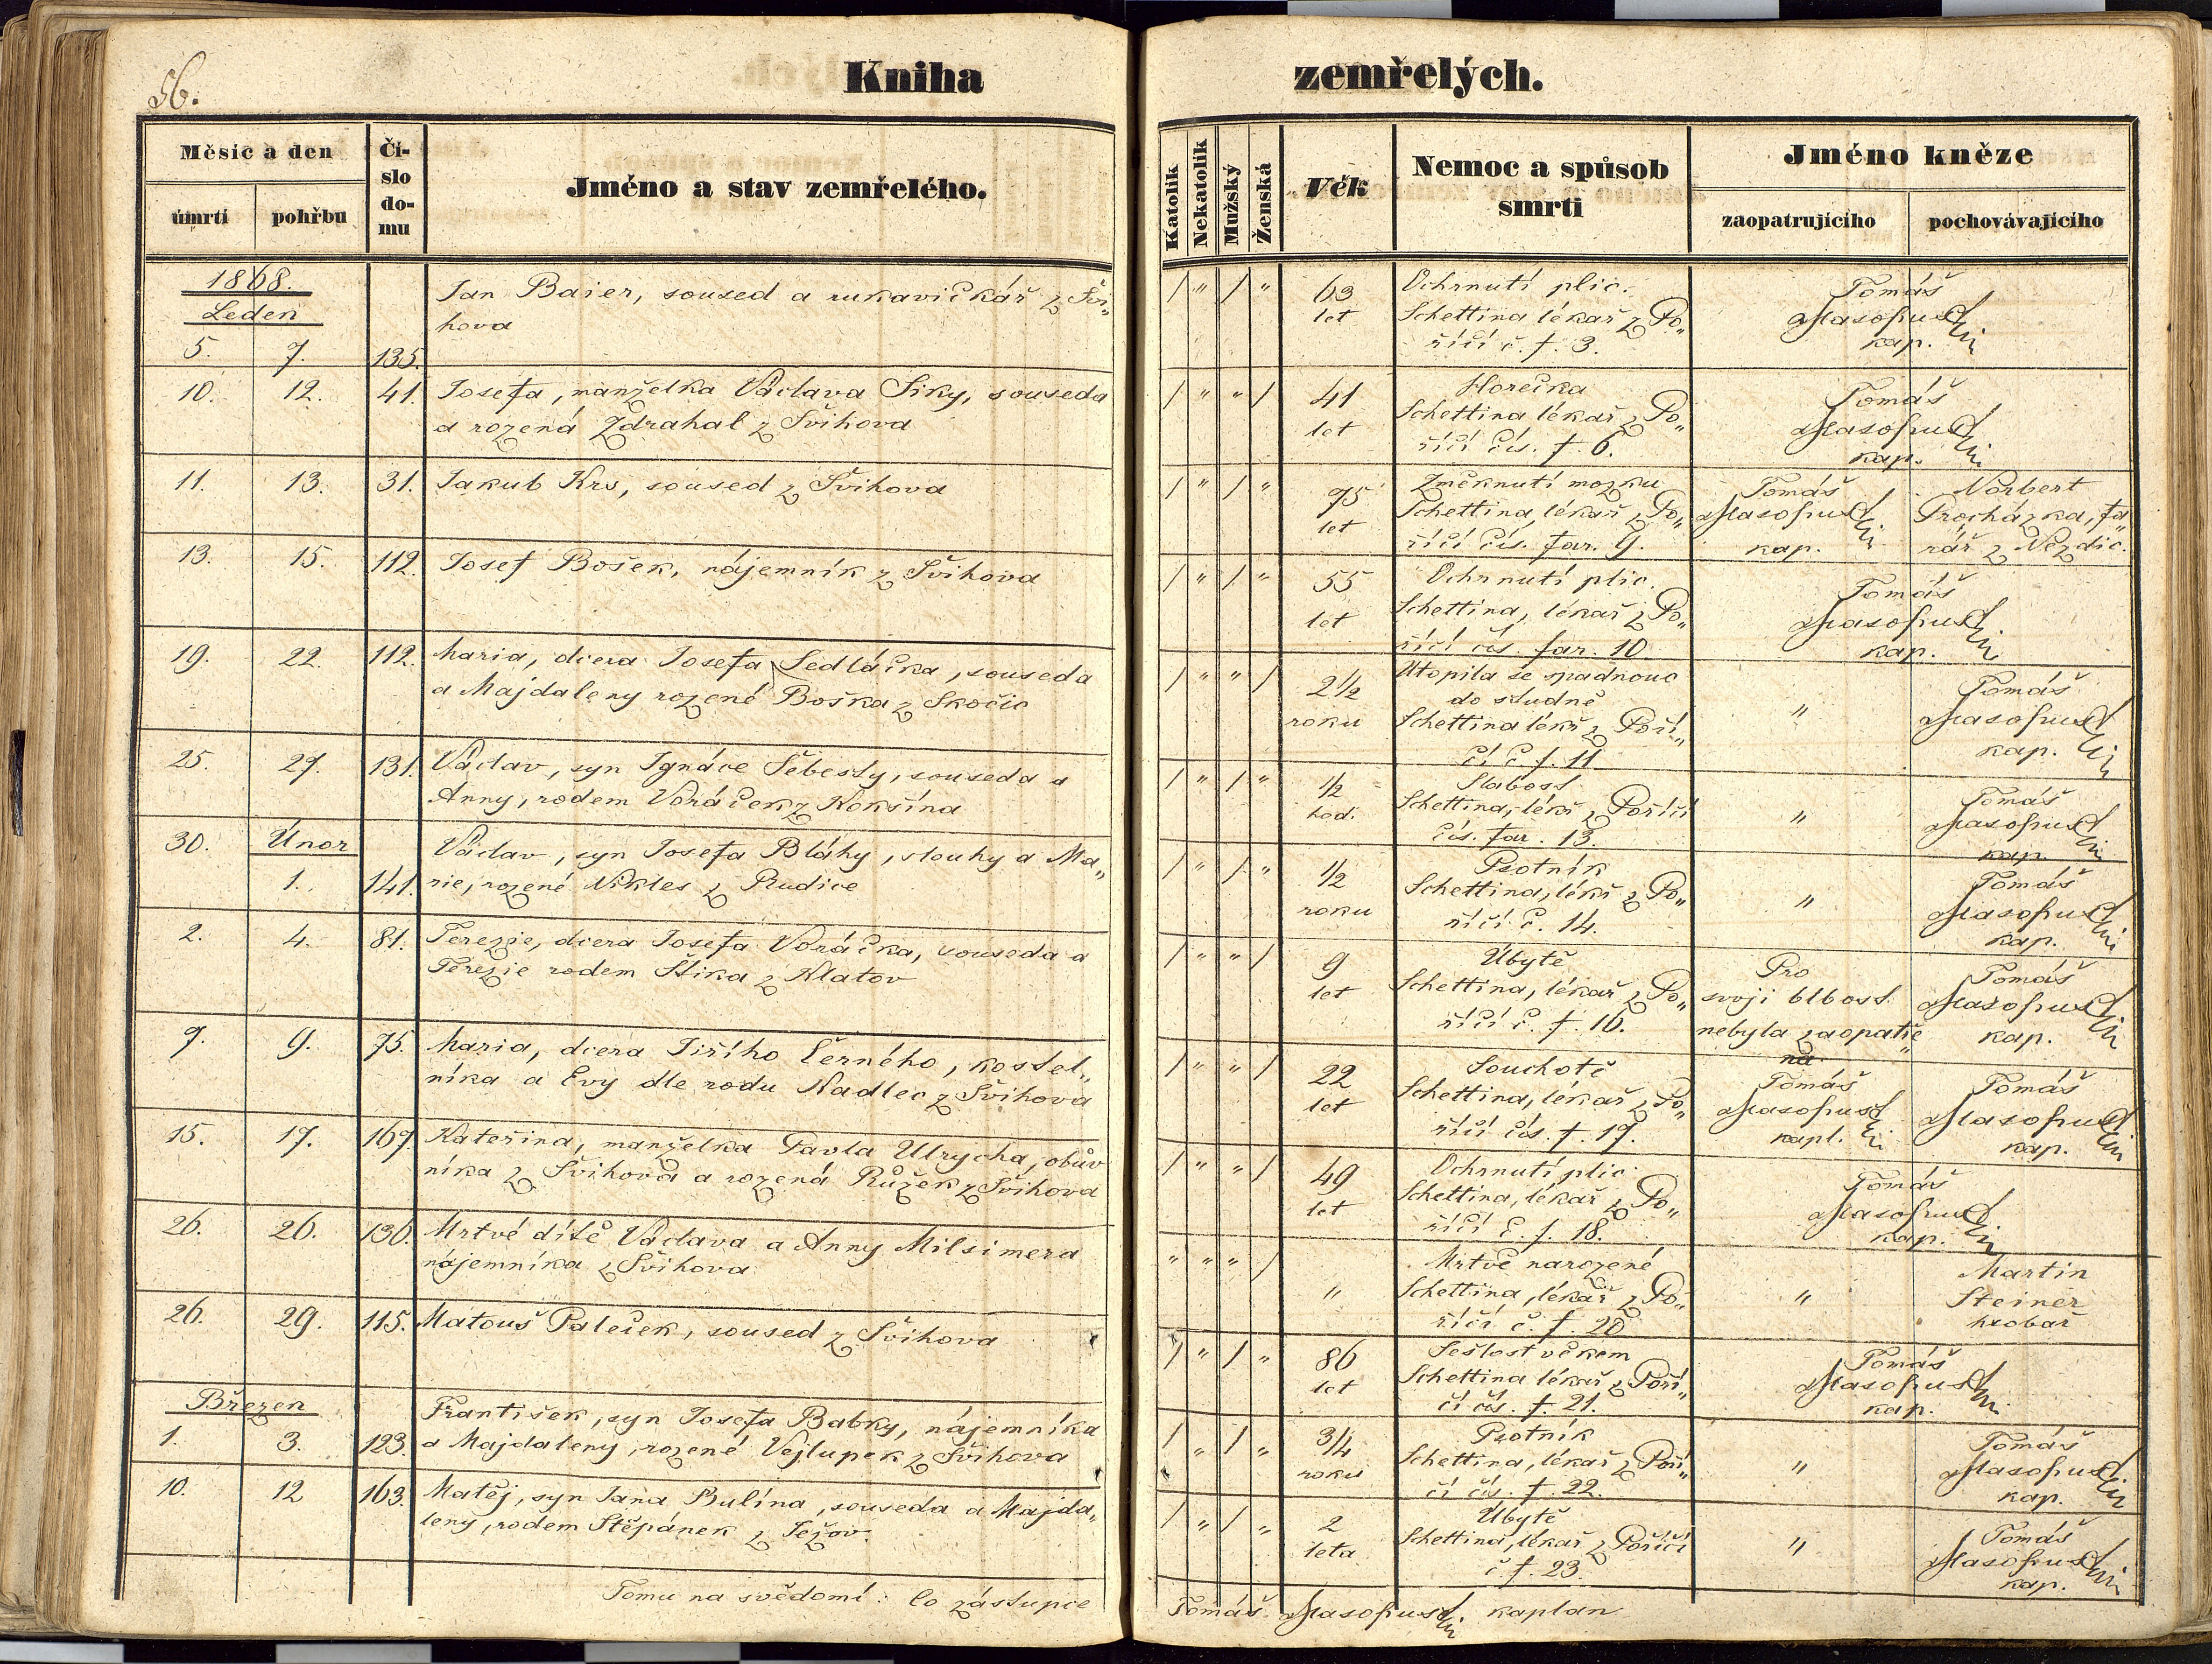 56.
Kniha
zemřelých.
Měsíc a den
úmrtí
pohřbu
Čí-
slo
do-
mu
Jméno a stav zemřelého.
Katolík
Nekatolík
Mužský
Ženská
Věk
Nemoc a spůsob
smrti
Jméno kněze
zaopatrujícího
pochovávajícího
1868.
Leden
5. 7. 135.
Jan Baier, soused a rukavičkář z Švi„
hova
/ " / "
63
let
Ochrnutí plic.
Schettina lékař z Po„
říčí č. f. 3.
Tomáš
Masopust
kap.
10. 12. 41.
Josefa, manželka Václava Siky, souseda
a rozená Zdrahal z Švihova
/ " " /
41
let
Horečka
Schettina lékař z Po„
říčí čís. f. 6.
Tomáš
Masopust
kap.
11. 13. 31.
Jakub Krs, soused z Švihova
/ " / "
75
let
Změknutí mozku
Schettina, lékař z Po„
říčí čís. far. 9.
Tomáš
Masopust
kap.
Norbert
Procházka, fa„
rář z Nezdic.
13. 15. 112.
Josef Bošek, nájemník z Švihova
/ " / "
55
let
Ochrnutí plic.
Schettina, lékař z Po„
říčí čís. far. 10.
Tomáš
Masopust
kap.
19. 22. 112.
Maria, dcera Josefa Sedláčka, souseda
a Majdaleny rozené Boška z Skočic
/ " " /
2 1/2
roku
Utopila se spadnouc
do studně
Schettina lékř z Poří„
čí č. f. 11
"
Tomáš
Masopust
kap.
25. 27. 131.
Václav, syn Ignáce Šebesty, souseda a
Anny, rodem Voráček z Kokšína
/ " / "
1/2
hod.
Slabost
Schettina, lékř z Poříčí
čís. far. 13.
"
Tomáš
Masopust
kap.
30. Únor
1. 141.
Václav, syn Josefa Bláhy, slouhy a Ma„
rie, rozené Nikles z Rudice
/ " / "
1/2
roku
Psotník
Schettina, lékř z Po„
říčí č. 14.
"
Tomáš
Masopust
kap.
2. 4. 81.
Terezie, dcera Josefa Voráčka, souseda a
Terezie rodem Štika z Klatov
/ " " /
9
let
Úbytě
Schettina, lékař z Po„
říčí č. f. 16.
Pro
svoji blbost
nebyla zaopatře„
na
Tomáš
Masopust
kap.
7. 9. 75.
Maria, dcera Jiřího Černého, kostel„
níka a Evy dle rodu Nadlec z Švihova
/ " " /
22
let
Souchotě
Schettina, lékař z Po„
říčí čís. f. 17.
Tomáš
Masopust
kapl.
Tomáš
Masopust
kap.
15. 17. 167.
Kateřina, manželka Pavla Ulrycha, obův
níka z Švihova a rozená Růžek z Švihova
/ " " /
49
let
Ochrnutí plic
Schettina, lékař z Po„
říčí č. f. 18.
Tomáš
Masopust
kap.
26. 26. 130.
Mrtvé dítě Václava a Anny Milsimera
nájemníka z Švihova
" " " /
"
Mrtvě narozené
Schettina, lékař z Po„
říčí č. f. 20
"
Martin
Steiner
hrobař
26. 29. 115.
Matouš Paleček, soused z Švihova
/ " / "
86
let
Sešlost věkem
Schettina lékař z Poří„
čí čís. f. 21.
Tomáš
Masopust
kap.
Březen
1. 3. 123.
František, syn Josefa Babky, nájemníka
a Majdaleny, rozené Vejlupek z Švihova
/ " / "
3/4
roku
Psotník
Schettina, lékař z Poří„
čí čís. f. 22.
"
Tomáš
Masopust
kap.
10. 12 163.
Matěj, syn Jana Bulína, souseda a Majda„
leny, rodem Štěpánek z Ježov.
/ " / "
2
leta
Úbytě
Schettina, lékař z Poříčí
č f. 23.
"
Tomáš
Masopust
kap.
Tomu na svědomí: Co zástupce
Tomáš Masopust. kaplan